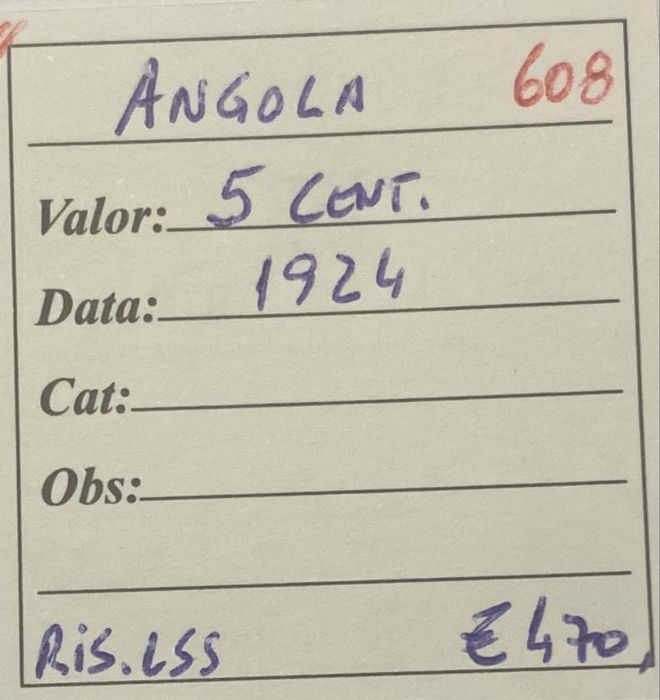 ANGOLA 608
Valor: 5 CENT.
Data: 1924
Cat:
Obs:
RiS. LSS €470,